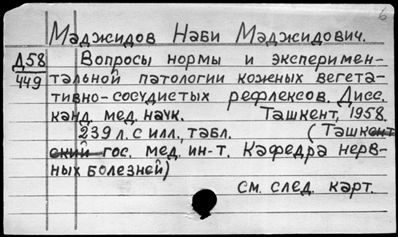 6
Мəджидов Нəби Мəджидович.
Д58
449
Вопросы нормы и эксперимен-
тальной патологии кожных вегета-
тивно-сосудистых рефлексов. Дисс.
канд. мед. наук. Ташкент, 1958.
239 л. с илл., табл. (Ташкент
ский гос. мед. ин-т. Кафедра нерв-
ных болезней)
см. след. карт.